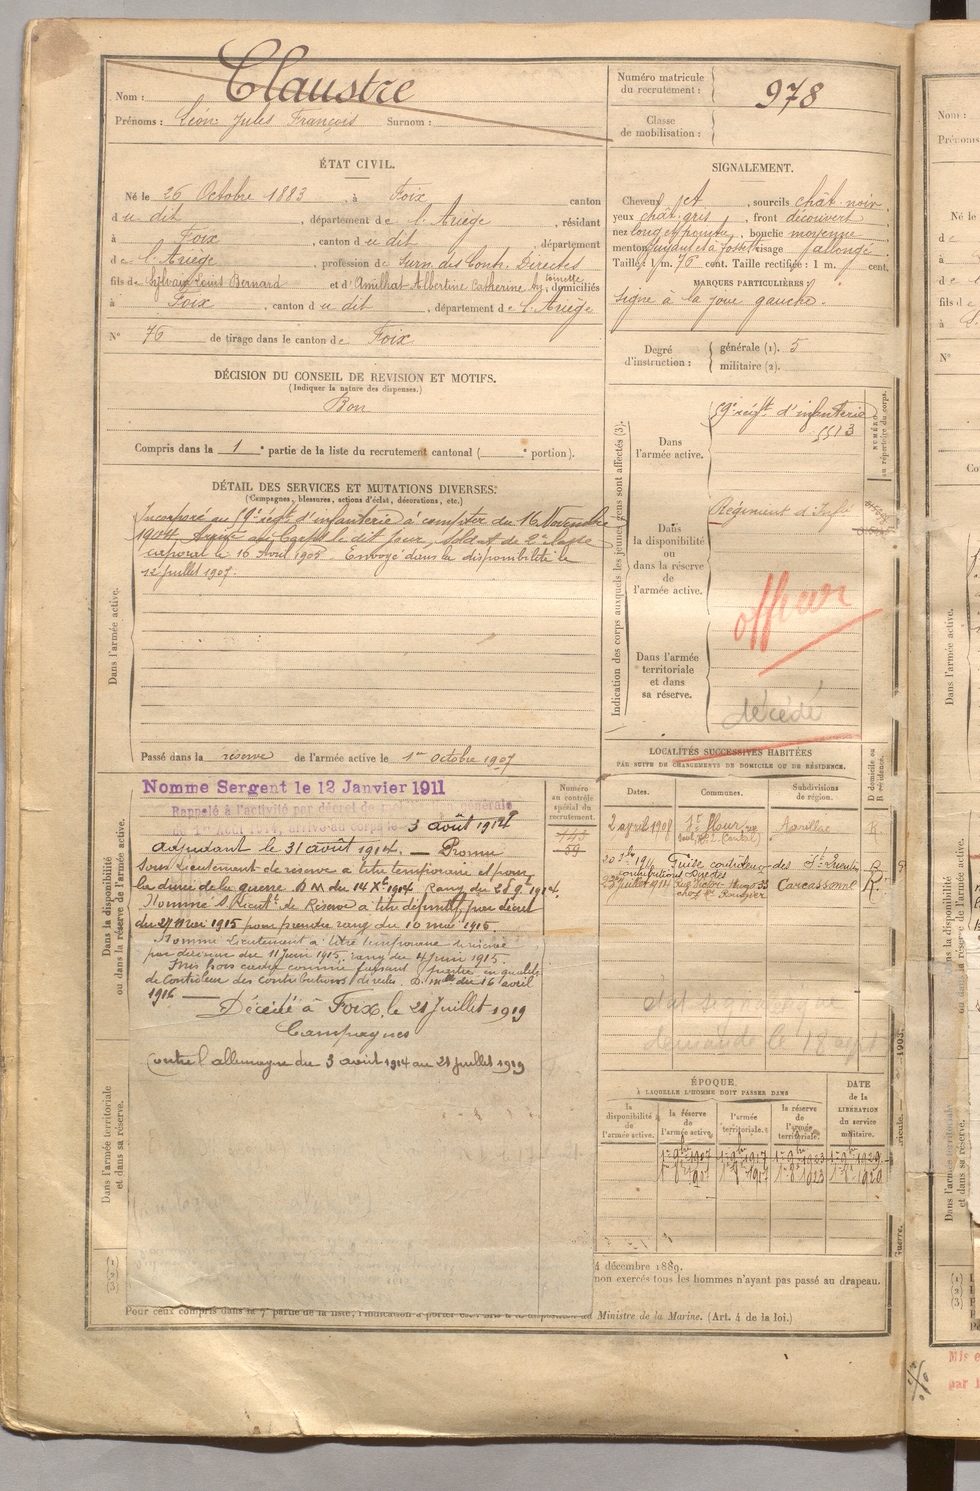 Nom : Claustre
Prénoms : Léon Jules François Surnom :
Numéro matricule du recrutement : 978
Classe de mobilisation :
ÉTAT CIVIL.
Né le 26 Octobre 1883, à Foix canton
du dit, département de l'Ariège, résidant
à Foix, canton du dit, département
de l'Ariège, profession de Surn. des Contr. Directes
fils de Sylvain Louis Bernard et d'Amilhat Albertine Catherine Antoinette, domiciliés
à Foix, canton du dit, département de l'Ariège
N° 76 de tirage dans le canton de Foix
DÉCISION DU CONSEIL DE REVISION ET MOTIFS.
(Indiquer la nature des dispenses.)
Bon
Compris dans la 1e partie de la liste du recrutement cantonal ( e portion).
SIGNALEMENT.
Cheveux, sourcils chât. noir,
yeux chât. gris, front découvert
nez long et pointu, bouche moyenne
menton fuyant et à fossette visage allongé
Taille : 1 m. 76 cent. Taille rectifiée : 1 m. cent.
MARQUES PARTICULIÈRES :
Signe à la joue gauche.
Degré d'instruction : générale (1). 5
militaire (2).
DÉTAIL DES SERVICES ET MUTATIONS DIVERSES.
(Campagnes, blessures, actions d'éclat, décorations, etc.)
Dans l'armée active.
Incorporé au 59e régt d'infanterie à compter du 16 Novembre
1904. Arrivé au Corps le dit jour, Soldat de 2e classe
caporal le 16 Avril 1905. Envoyé dans la disponibilité le
12 juillet 1907.
Passé dans la réserve de l'armée active le 1er octobre 1907
Indication des corps auxquels les jeunes gens sont affectés (3).
NUMÉRO au répertoire du corps.
Dans l'armée active.
59e régt d'infanterie
5513
Dans la disponibilité ou dans la réserve de l'armée active.
Régiment d'Infie
officier
Dans l'armée territoriale et dans sa réserve.
décédé
Dans la disponibilité ou dans la réserve de l'armée active.
Nomme Sergent le 12 Janvier 1911
Rappelé à l'activité par décret de mobilisation générale
du 1er Août 1914, arrivé au corps le 3 août 1914
adjudant le 31 août 1914. — Promu
sous Lieutenant de réserve à titre temporaire et pour
la durée de la guerre B M du 14 Xbre 1914 Rang du 21 9bre 1914
Nommé S/Lieutt de Réserve à titre définitif par décret
du 27 mai 1915 pour prendre rang du 10 mai 1915.
Nommé Lieutenant à titre temporaire
par décision du 11 juin 1915, rang du 4 juin 1915.
Mis hors cadre comme faisant partie en qualité
de Contrôleur des contributions directes. D. mlle du 16 avril
1916 —
Décédé à Foix, le 21 Juillet 1919
Campagnes
Contre l'allemagne du 3 août 1914 au 21 juillet 1919
Dans l'armée territoriale et dans sa réserve.
Numéro au contrôle spécial du recrutement.
59
LOCALITÉS SUCCESSIVES HABITÉES
PAR SUITE DE CHANGEMENTS DE DOMICILE OU DE RÉSIDENCE.
Dates. Communes. Subdivisions de région. D domicile ou R résidence.
2 avril 1908 St flour (Cantal) Aurillac R
Guise contrôleur des contributions directes St Quentin R
Rue Victor Hugo 33 Carcassonne R.
demande le 18 sept
ÉPOQUE
À LAQUELLE L'HOMME DOIT PASSER DANS
la disponibilité de l'armée active. la réserve de l'armée active. l'armée territoriale. la réserve de l'armée territoriale. DATE de la LIBÉRATION du service militaire.
1er 8bre 1907 1er 8bre 1917 1er 8bre 1923 1er 8bre 1929
4 décembre 1889.
non exercés tous les hommes n'ayant pas passé au drapeau.
Pour ceux compris dans la 7e partie de la liste, l'indication à porter
Ministre de la Marine. (Art. 4 de la loi.)